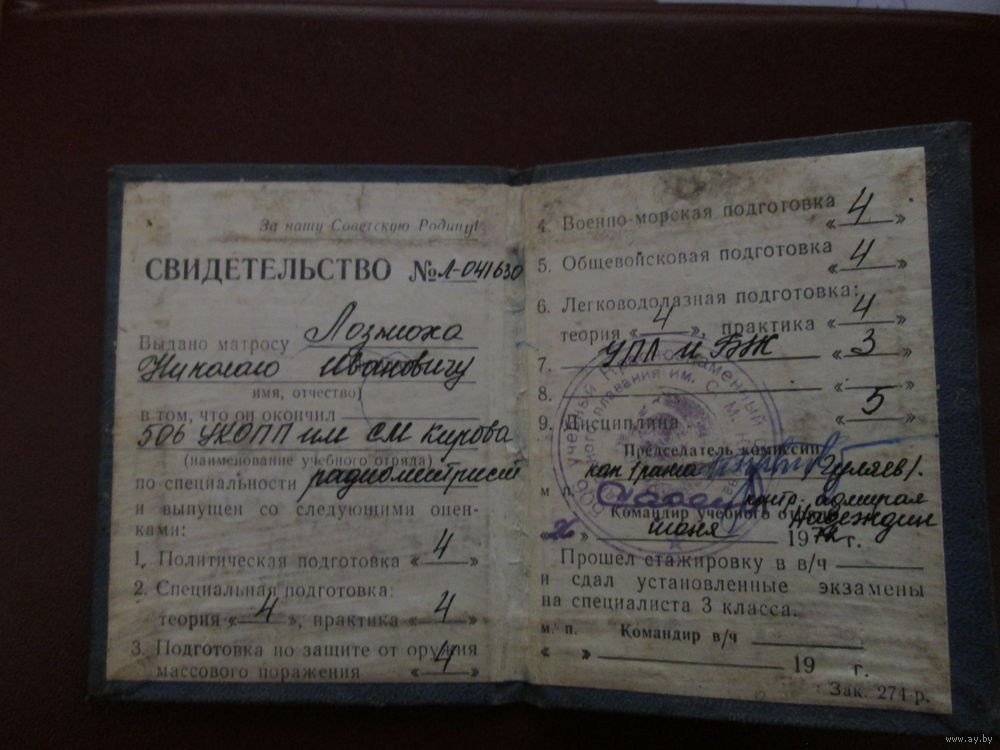 За нашу Советскую Родину!
СВИДЕТЕЛЬСТВО № Л-041630
Выдано матросу Лозмоха
Николаю Ивановичу
имя, отчество
в том, что он окончил
506 УКОПП им СМ Кирова
(наименование учебного отряда)
по специальности радиометрист
и выпущен со следующими оцен-
ками:
1. Политическая подготовка « 4 »
2. Специальная подготовка:
теория « 4 », практика « 4 »
3. Подготовка по защите от оружия
массового поражения « 4 »
4. Военно-морская подготовка « 4 »
5. Общевойсковая подготовка « 4 »
6. Легководолазная подготовка:
теория « 4 », практика « 4 »
7. УПЛ и БЖ « 3 »
8. « »
9. Дисциплина « 5 »
Председатель комиссии
кап 1 ранга (Гуляев).
м. п. контр. адмирал
Командир учебного отряда Надеждин
« » июня 19 г.
Прошел стажировку в в/ч
и сдал установленные экзамены
на специалиста 3 класса.
м. п. Командир в/ч
« » 19 г.
Зак. 274 р.
www.ay.by